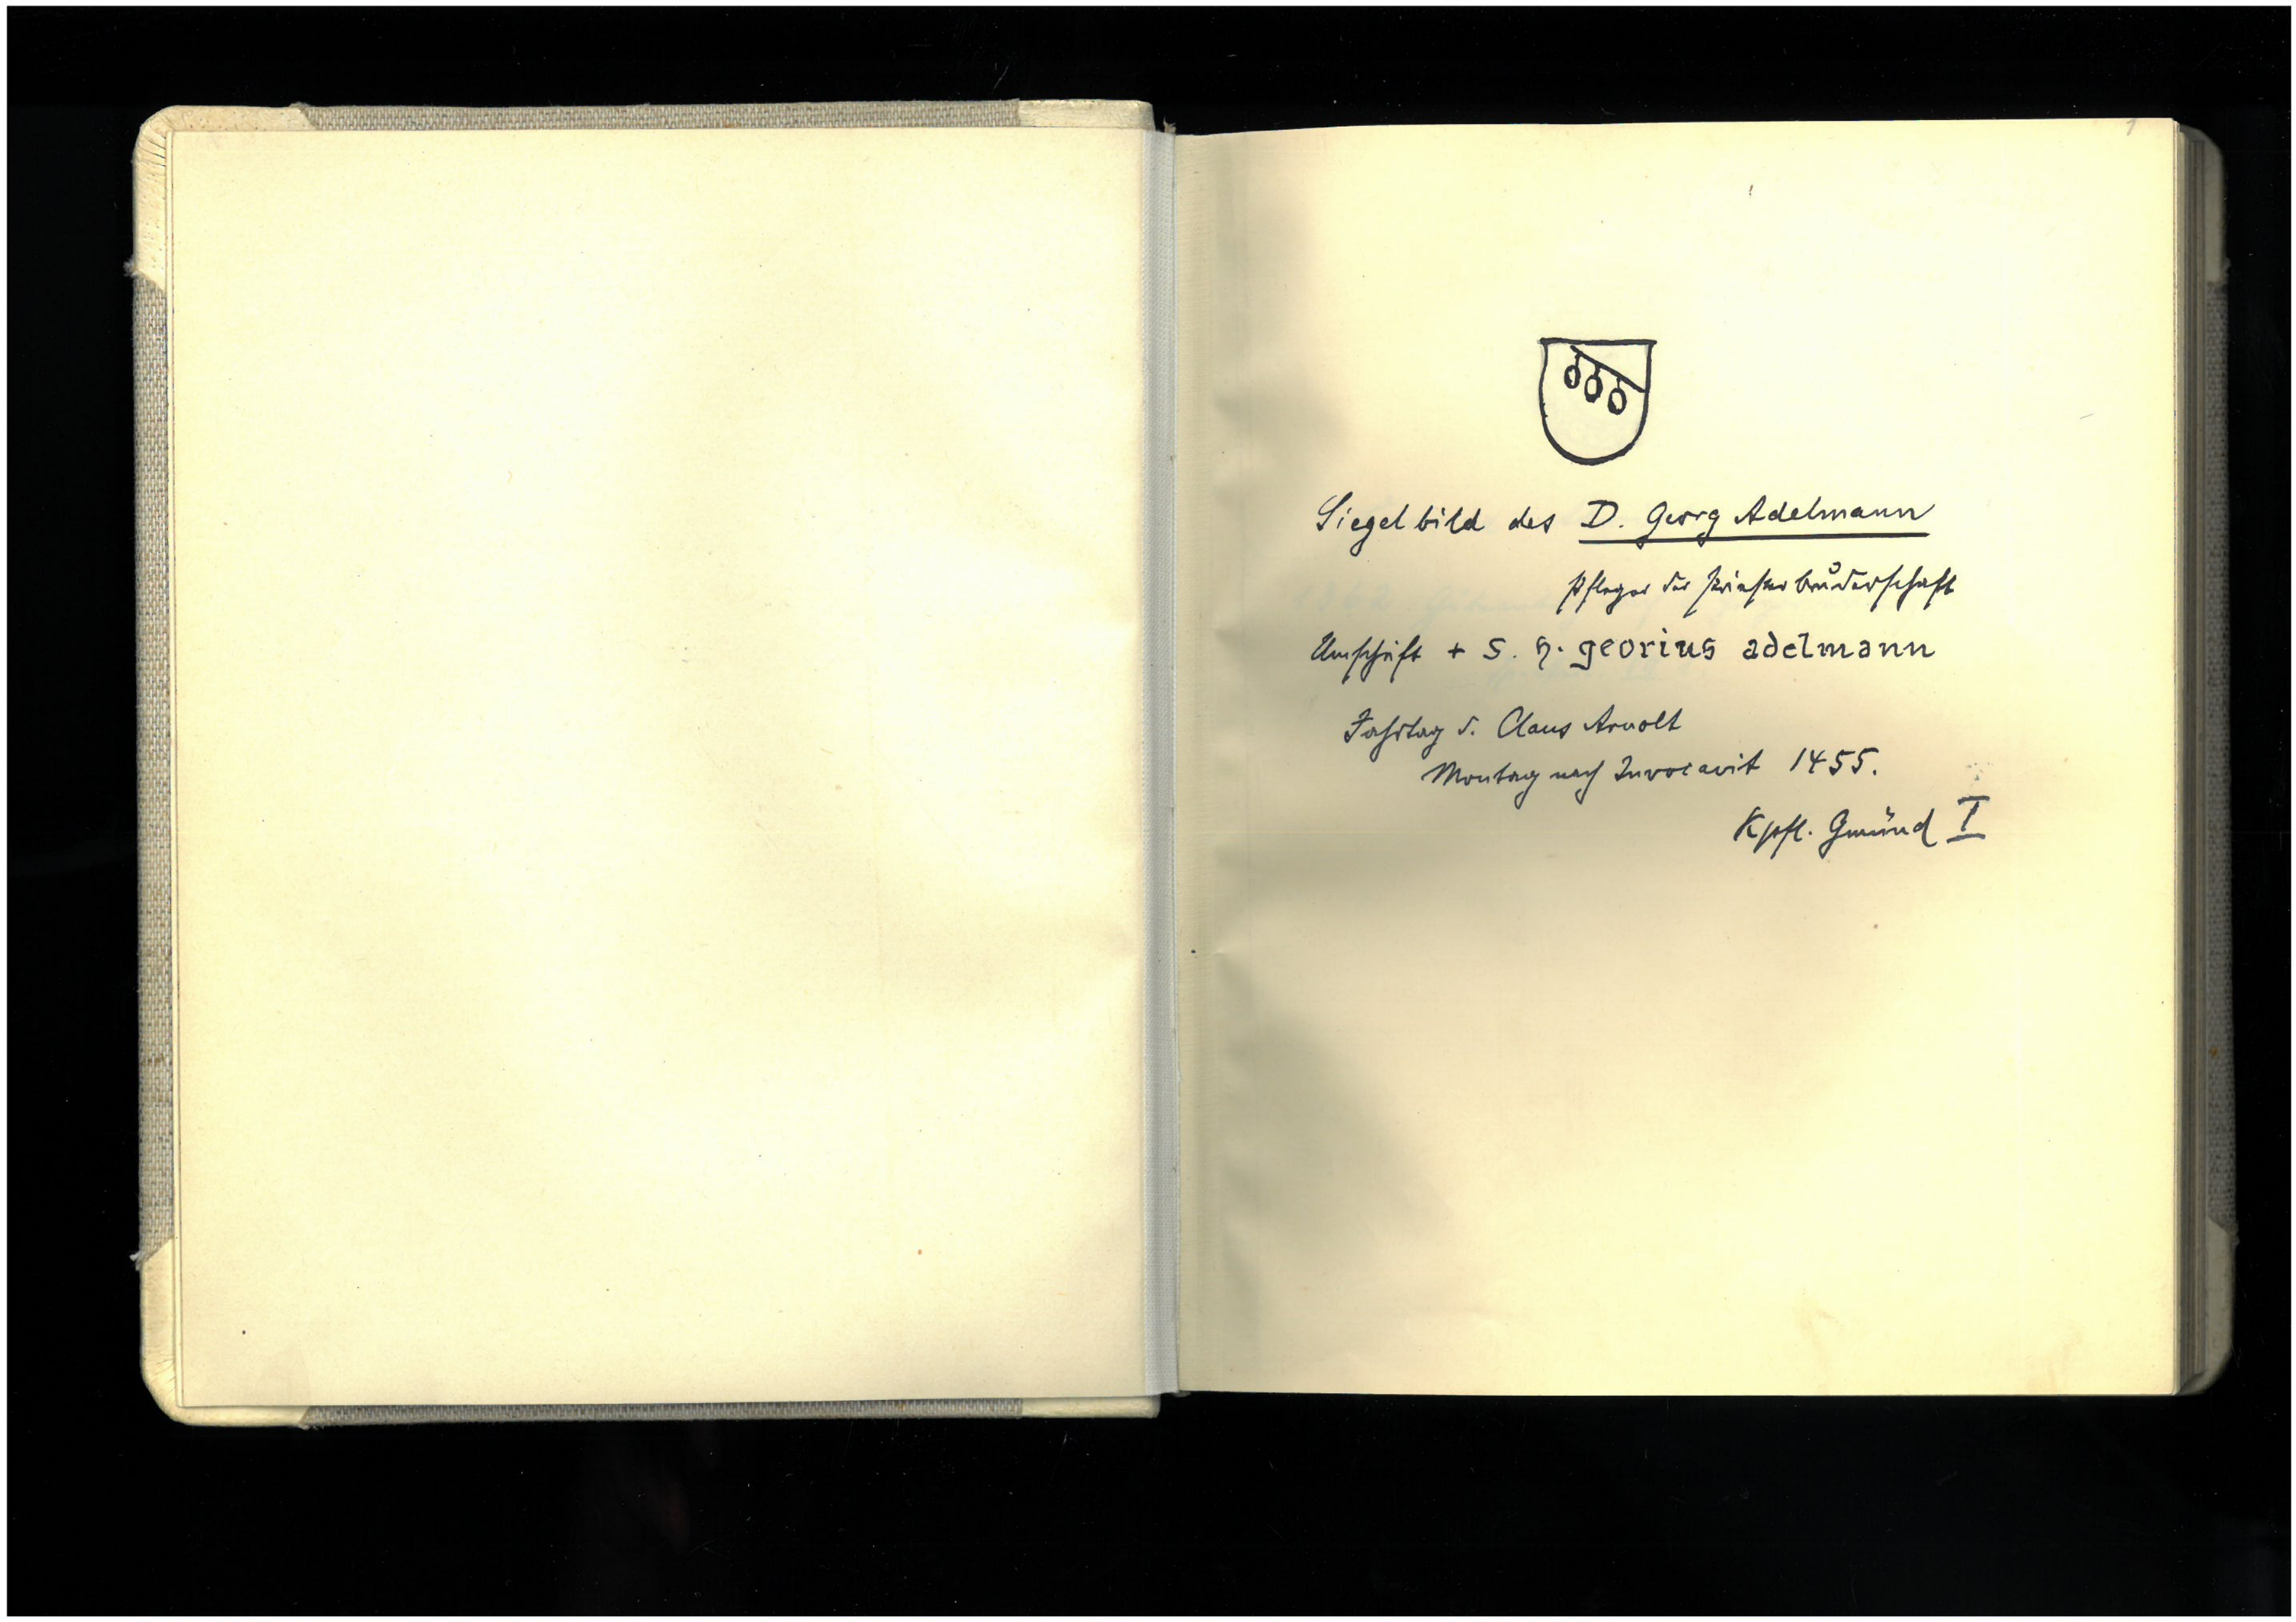 1
Siegelbild des D. Georg Adelmann
Pfleger der Priesterbruderschaft
Umschrift + s. h. georius adelmann
Jahrtag d. Claus Arnolt
Montag nach Invocavit 1455.
Kpfl. Gmünd I